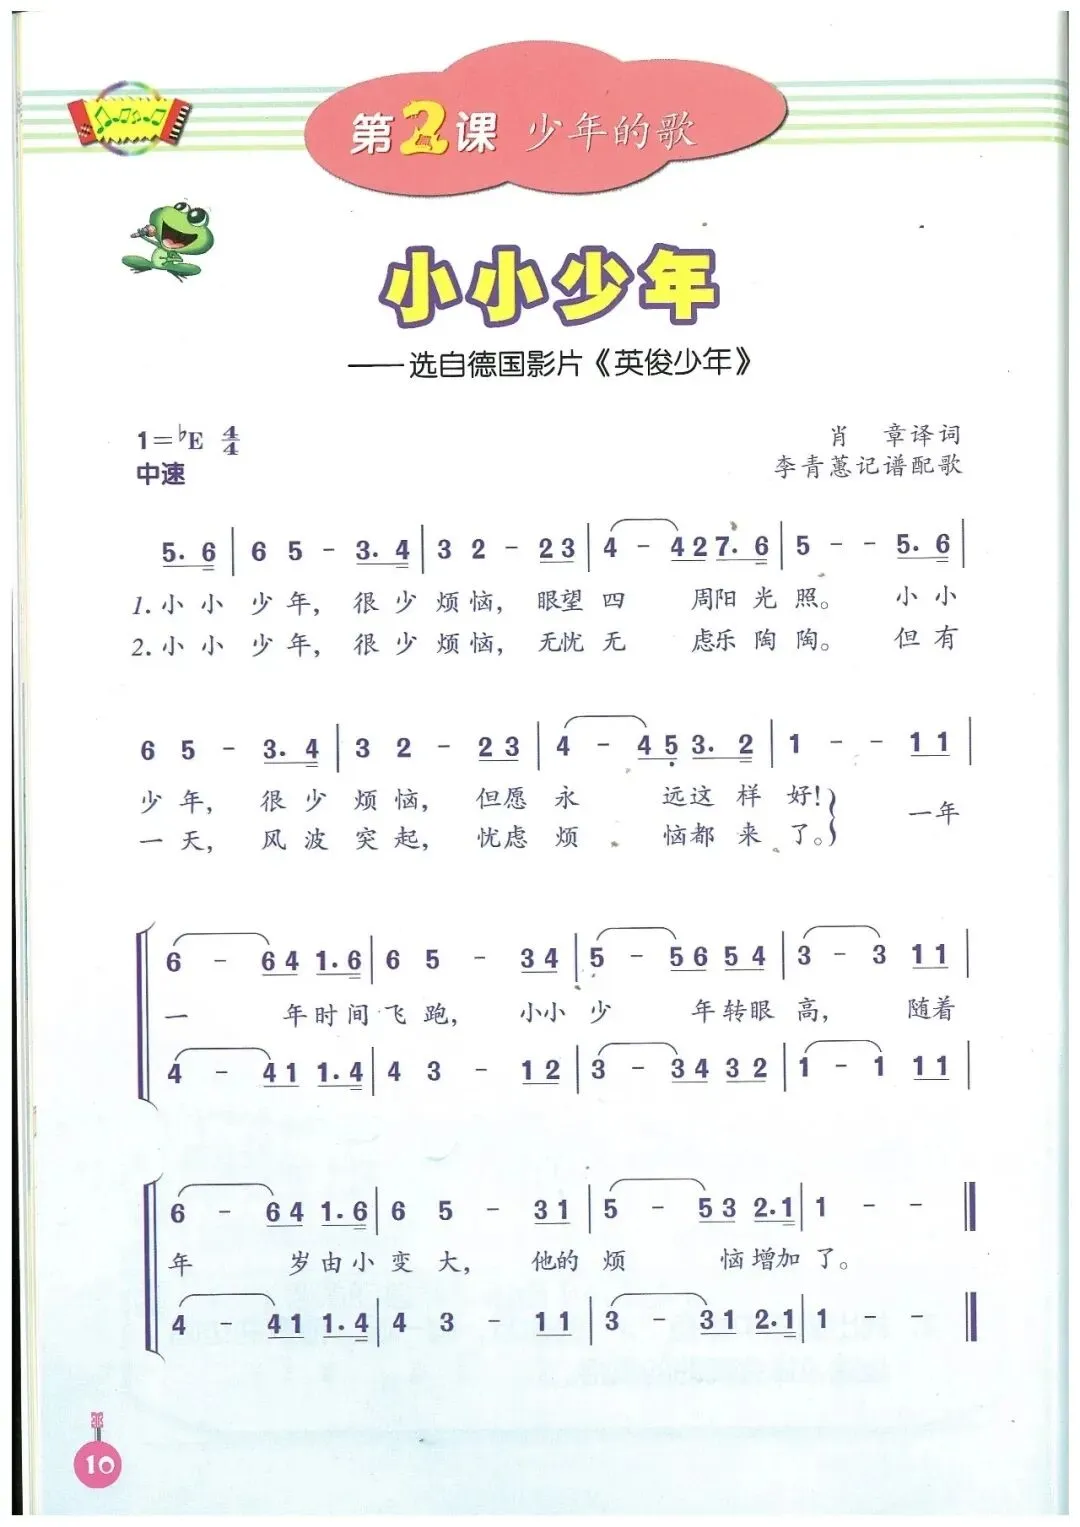 第2课 少年的歌
小小少年
——选自德国影片《英俊少年》
1=♭E 4/4
肖 章译词
中速
李青蕙记谱配歌
5. 6 | 6 5 - 3. 4 | 3 2 - 2 3 | 4 - 4 2 7. 6 | 5 - - 5. 6 |
1.小 小 少 年, 很 少 烦 恼, 眼望 四 周阳 光 照。 小 小
2.小 小 少 年, 很 少 烦 恼, 无忧 无 虑乐 陶 陶。 但 有
6 5 - 3. 4 | 3 2 - 2 3 | 4 - 4 5̣ 3. 2 | 1 - - 1 1 |
少 年, 很 少 烦 恼, 但愿 永 远这 样 好! 一年
一 天, 风 波 突 起, 忧虑 烦 恼都 来 了。
6 - 6 4 1. 6 | 6 5 - 3 4 | 5 - 5 6 5 4 | 3 - 3 1 1 |
一 年时 间 飞 跑, 小小 少 年转眼 高, 随着
4 - 4 1 1. 4 | 4 3 - 1 2 | 3 - 3 4 3 2 | 1 - 1 1 1 |
6 - 6 4 1. 6 | 6 5 - 3 1 | 5 - 5 3 2. 1 | 1 - - ‖
年 岁由 小 变 大, 他的 烦 恼增加 了。
4 - 4 1 1. 4 | 4 3 - 1 1 | 3 - 3 1 2. 1 | 1 - - ‖
10